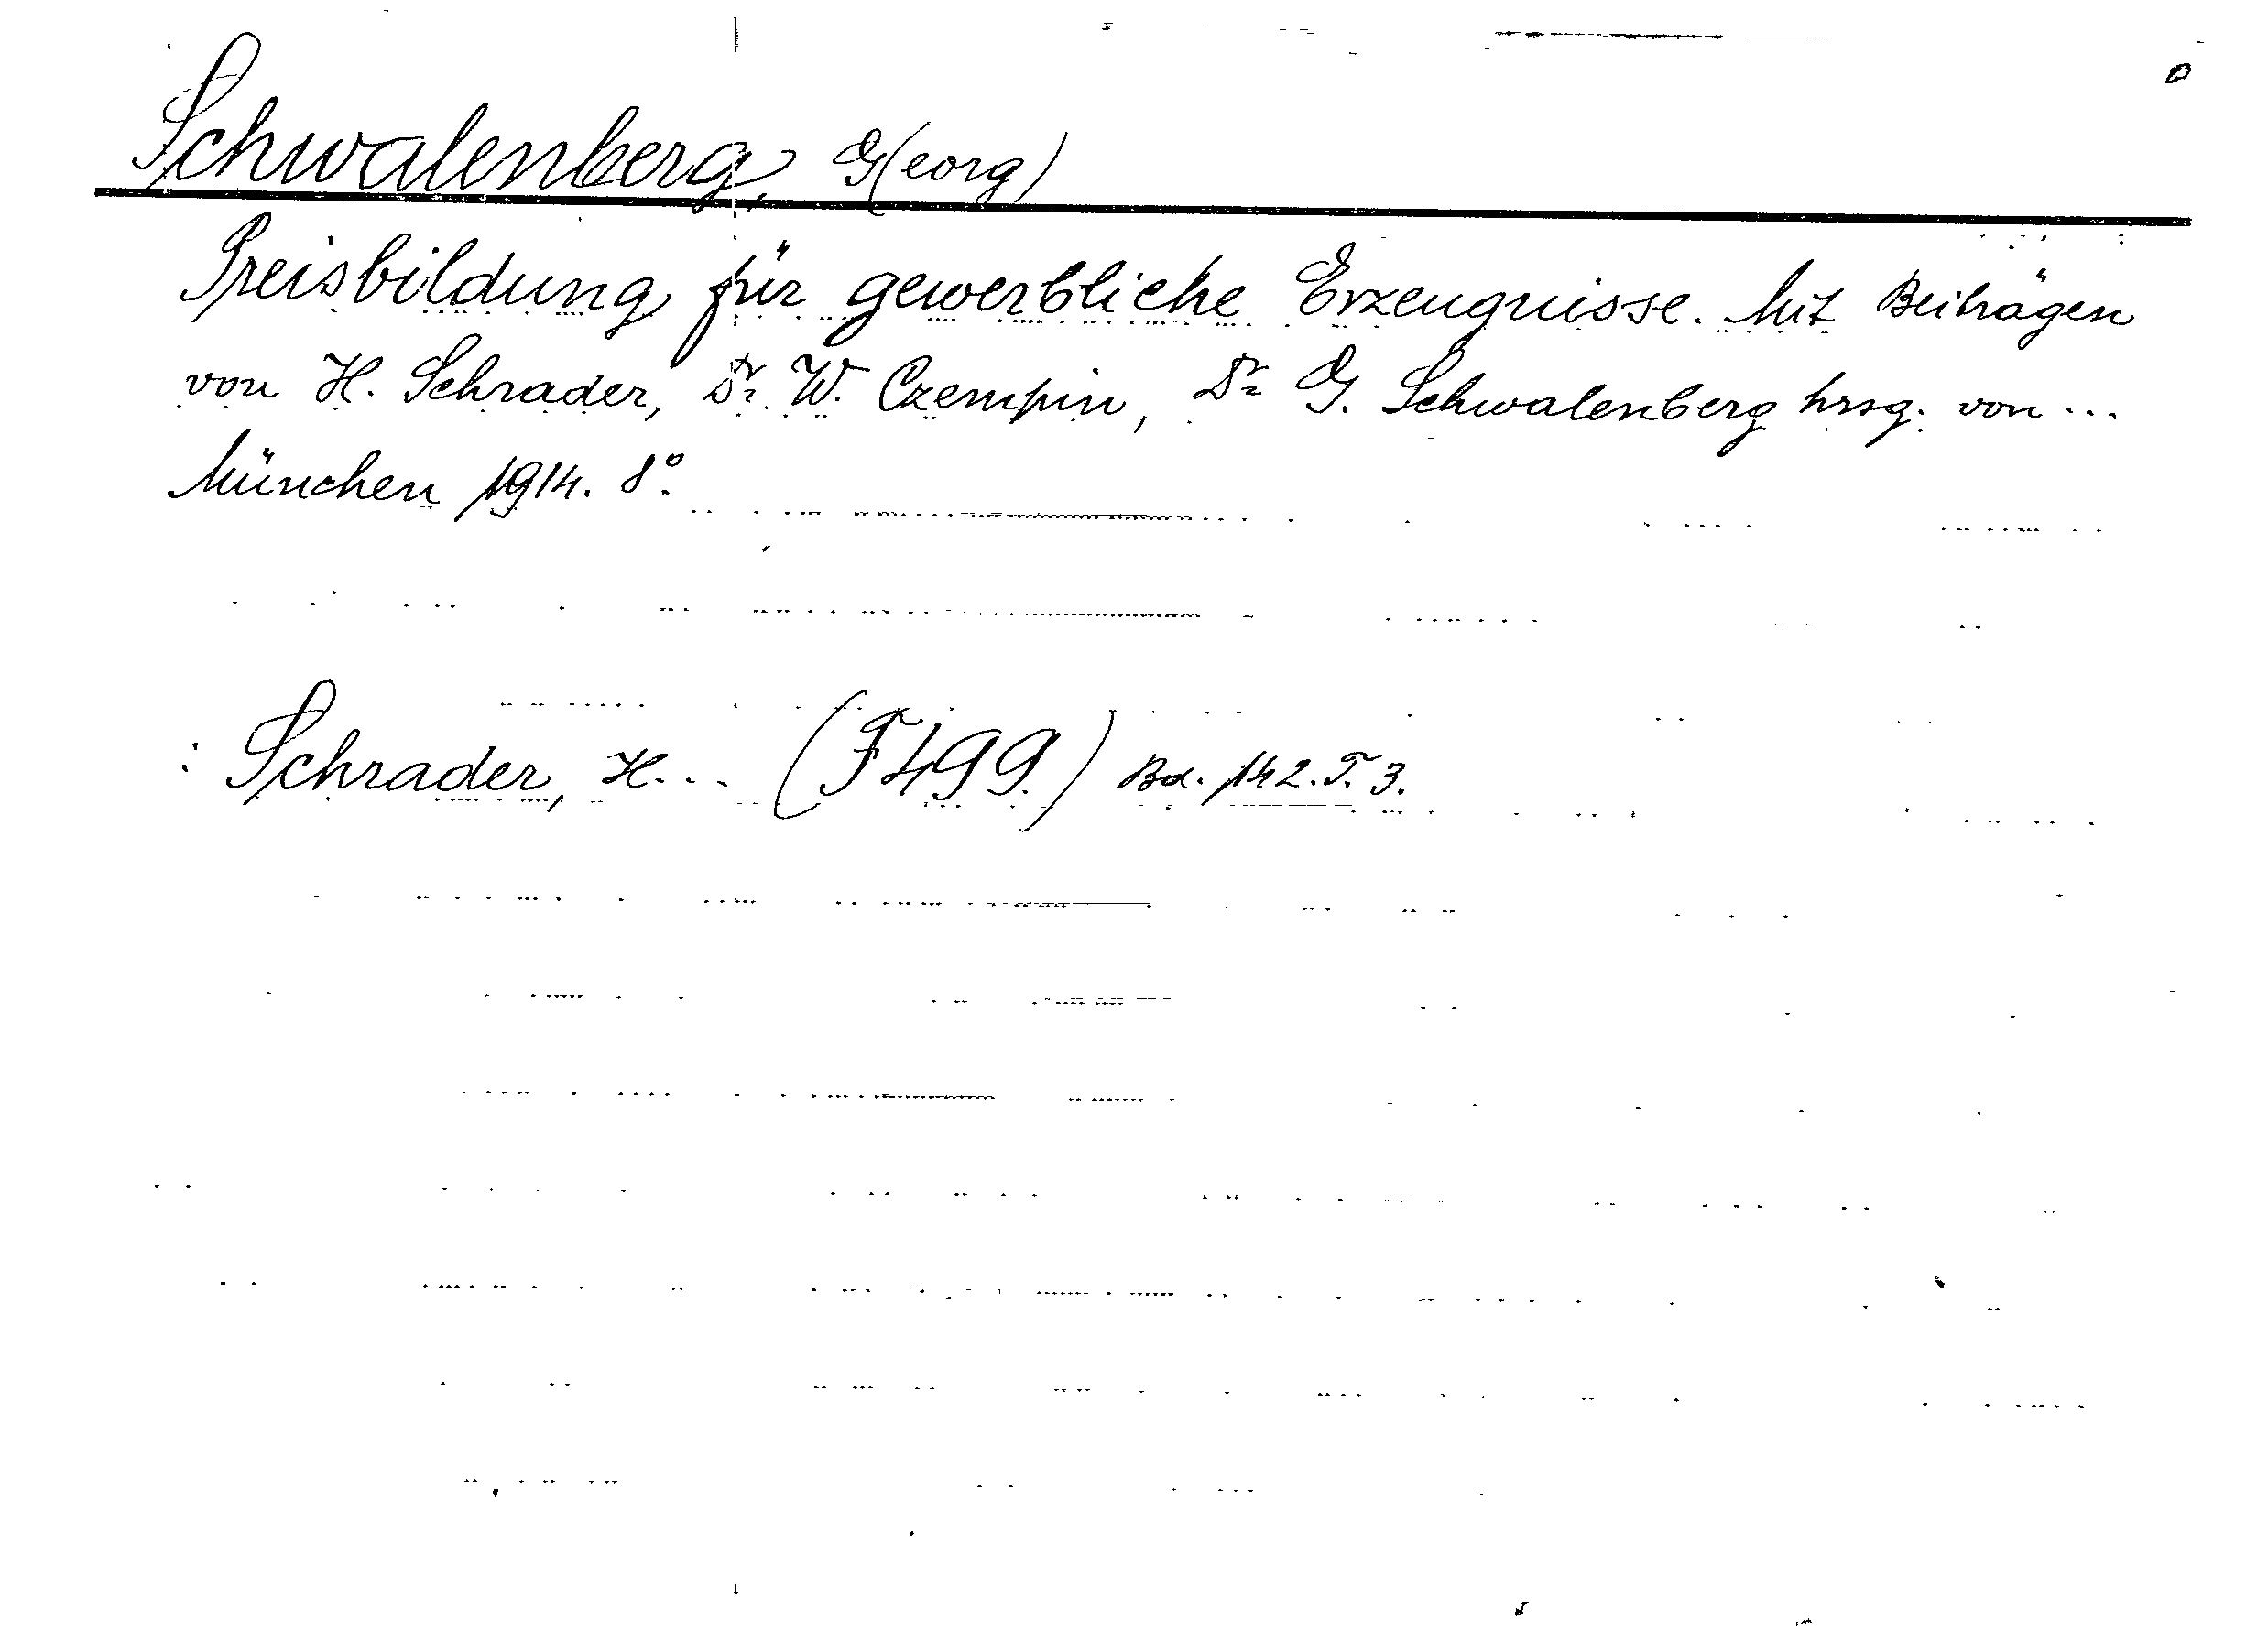 Schwalenberg, G(eorg)
Preisbildung für gewerbliche Erzeugnisse. Mit Beiträgen
von H. Schrader, Dr. W. Czempin, Dr. G. Schwalenberg hrsg. von ...
München 1914. 8°.
: Schrader, H... (F499.) Bd. 142. T. 3.